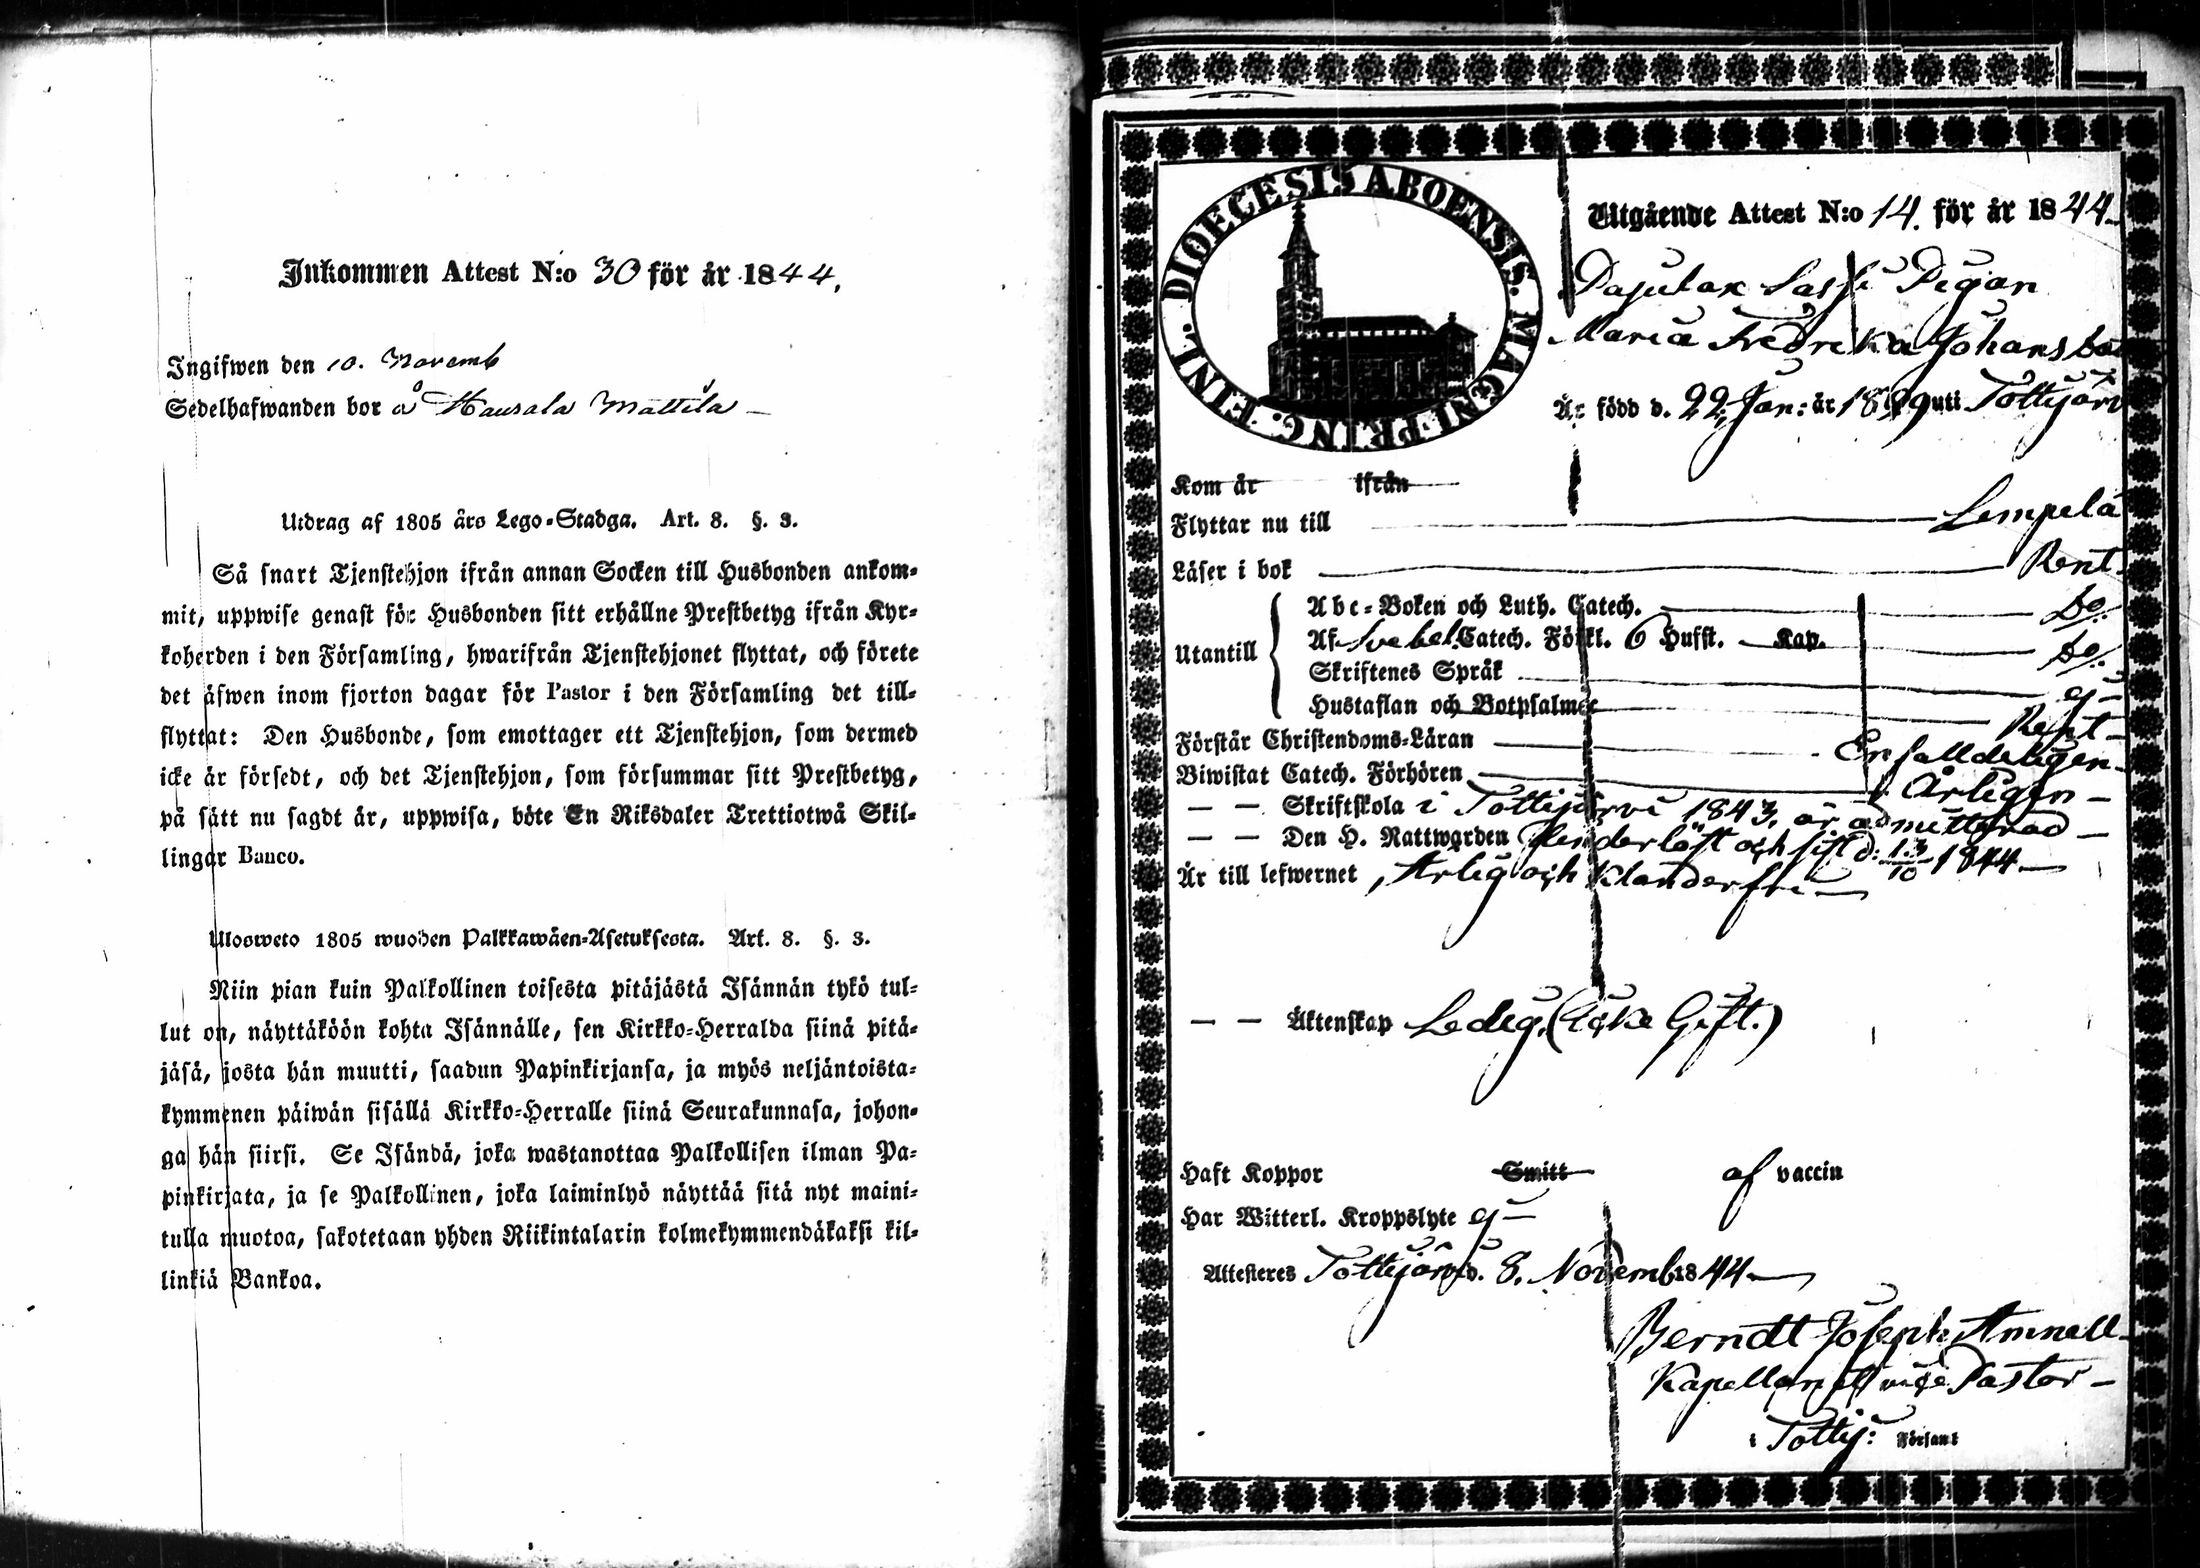 Inkommen Attest N:o 30 för år 1844.
Ingifwen den 10. Novemb
Sedelhafwanden bor å Hausala Mattila
Utdrag af 1805 års Lego-Stadga. Art. 8. §. 3.
Så snart Tjenstehjon ifrån annan Socken till Husbonden ankom-
mit, uppwise genast för Husbonden sitt erhållne Prestbetyg ifrån Kyr-
koherden i den Församling, hwarifrån Tjenstehjonet flyttat, och förete
det äfwen inom fjorton dagar för Pastor i den Församling det till-
flyttat: Den Husbonde, som emottager ett Tjenstehjon, som dermed
icke är försedt, och det Tjenstehjon, som försummar sitt Prestbetyg,
på sätt nu sagdt är, uppwisa, böte En Riksdaler Trettiotwå Skil-
lingar Banco.
Ulosweto 1805 wuoden Palkkawäen-Asetuksesta. Art. 8. §. 3.
Niin pian kuin Palkollinen toisesta pitäjästä Isännän tykö tul-
lut on, näyttäköön kohta Isännälle, sen Kirkko-Herralda siinä pitä-
jäsä, josta hän muutti, saadun Papinkirjansa, ja myös neljäntoista-
kymmenen päiwän sisällä Kirkko-Herralle siinä Seurakunnasa, johon-
ga hän siirsi. Se Isändä, joka wastanottaa Palkollisen ilman Pa-
pinkirjata, ja se Palkollinen, joka laiminlyö näyttää sitä nyt maini-
tulla muotoa, sakotetaan yhden Riikintalarin kolmekymmendäkaksi kil-
linkiä Bankoa.
DIOECESIS ABOENSIS. MAGNI PRINC. FINL.
Utgående Attest N:o 14. för år 1844
Pigan
Maria Fredrika Johansdo
Är född d. 22 Jan: år 1829 uti Tottijärv
Kom år ifrån
Flyttar nu till Lempelä
Läser i bok Rent
Abc-Boken och Luth. Catech. Do
Utantill
Af Svebel. Catech. Förkl. 6 Hufst. Kap. Do.
Skriftenes Språk ej
Hustaflan och Botpsalmer Rent
Förstår Christendoms-Läran Enfalldeligen
Biwistat Catech. Förhören Årligen
— — Skriftskola i Tottijärvi 1843, är admitterad
— — Den H. Nattwarden klanderlöst och sist d: 13/10 1844
Är till lefwernet, Ärlig och klanderfri
— — Äktenskap Ledig. (icke Gift.)
Haft Koppor Smitt af vaccin
Har Witterl. Kroppslyte ej
Attesteres Tottijärvi d. 8. Novemb 1844
Berndt Joseph Amnell
Kapellan Pastor
i Tottij: Församl